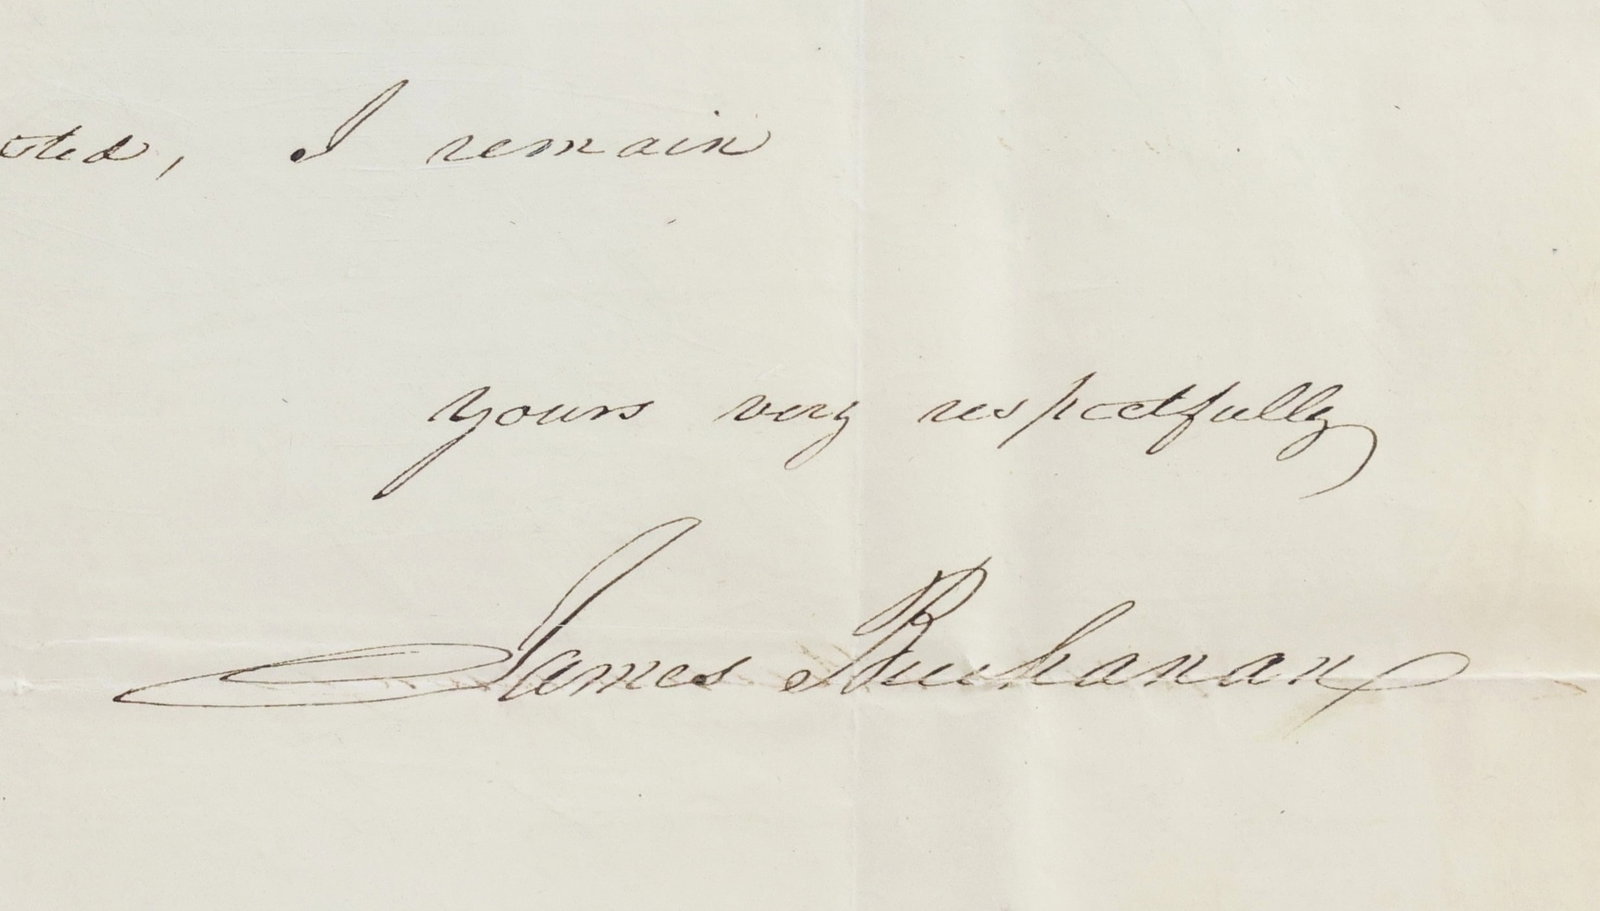 sted, I remain
yours very respectfully
James Buchanan